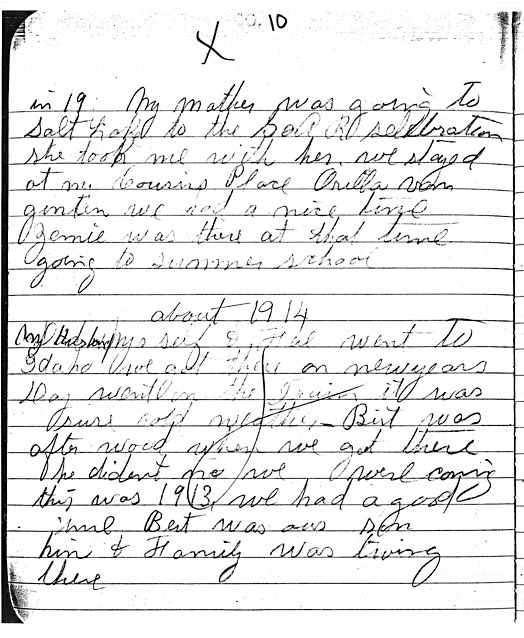 10
X
in 19 My mother was going to
Salt Lake to the celebration
she took me with her. we stayed
at my Cousins Place Orilla van
we had a nice time
Bernie was there at that time
going to summer school
about 1914
My Husband & Hal went to
Idaho we got there on newyears
Day went on the Train it was
sure cold weather - Birt was
after wood when we got there
he dident no we were coming
this was 1913 we had a good
time Bert was our son
him & Family was living
there